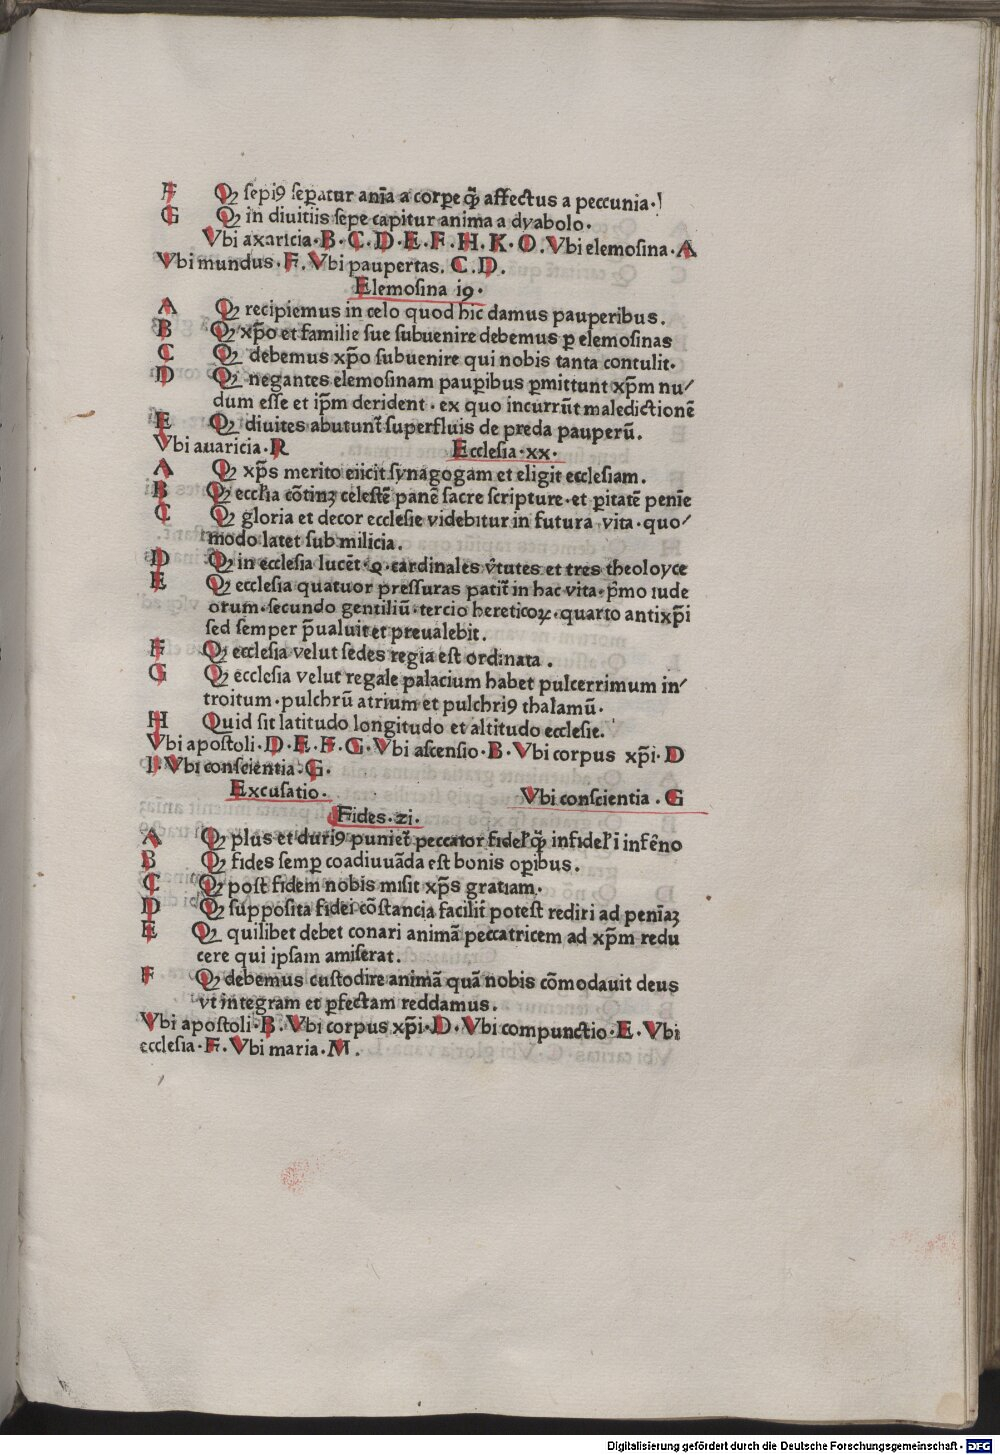 F Qꝫ sepiꝰ sepatur anīa a corpe q̄ȝ affectus a peccunia·
G Qꝫ in diuitiis sepe capitur anima a dyabolo.
Vbi axaricia·B·C·D·E·F·H·K·O. Vbi elemosina·A
Vbi mundus·F. Vbi paupertas. C.D.
Elemosina i9·
A Qꝫ recipiemus in celo quod hic damus pauperibus.
B Qꝫ xp̄o et familie sue subuenire debemus ꝑ elemosinas
C Qꝫ debemus xp̄o subuenire qui nobis tanta contulit·
D Qꝫ negantes elemosinam pauꝑibus ꝑmittunt xp̄m nu⸗
dum esse et ip̄m derident·ex quo incurrūt maledictionē
E Qꝫ diuites abutunt̄ superfluis de preda pauperū.
Vbi auaricia·R Ecclesia·xx·
A Qꝫ xp̄s merito eiicit synagogam et eligit ecclesiam.
B Qꝫ eccl̄ia cōtinꝫ celestē panē sacre scripture·et ꝑitatē penīe
C Qꝫ gloria et decor ecclesie videbitur in futura vita·quo⸗
modo latet sub milicia.
D Qꝫ in ecclesia lucēt·4·cardinales v̄tutes et tres theoloyce
E Qꝫ ecclesia quatuor pressuras patit̄ in hac vita·p̄mo iude
orum·secundo gentiliū·tercio hereticoꝝ·quarto antixp̄i
sed semper p̄ualuit et preualebit.
F Qꝫ ecclesia velut sedes regia est ordinata.
G Qꝫ ecclesia velut regale palacium habet pulcerrimum in⸗
troitum·pulchrū atrium et pulchriꝰ thalamū·
H Quid sit latitudo longitudo et altitudo ecclesie.
Vbi apostoli·D·E·F·G·Vbi ascensio·B·Vbi corpus xp̄i·D
I·Vbi conscientia·G·
Excusatio· Vbi conscientia.G
Fides·zi·
A Qꝫ plus et duriꝰ puniet̄ peccator fidel̄ q̄ȝ infidel̄ i infēno
B Qꝫ fides semꝑ coadiuuāda est bonis oꝑibus.
C Qꝫ post fidem nobis misit xp̄s gratiam·
D Qꝫ supposita fidei cōstancia facilit̄ potest rediri ad penīaꝫ
E Qꝫ quilibet debet conari animā peccatricem ad xp̄m redu
cere qui ipsam amiserat.
F Qꝫ debemus custodire animā quā nobis cōmodauit deus
vt integram et ꝑfectam reddamus.
Vbi apostoli·B. Vbi corpus xp̄i·D·Vbi compunctio·E·Vbi
ecclesia·F. Vbi maria·M.
Digitalisierung gefördert durch die Deutsche Forschungsgemeinschaft - DFG